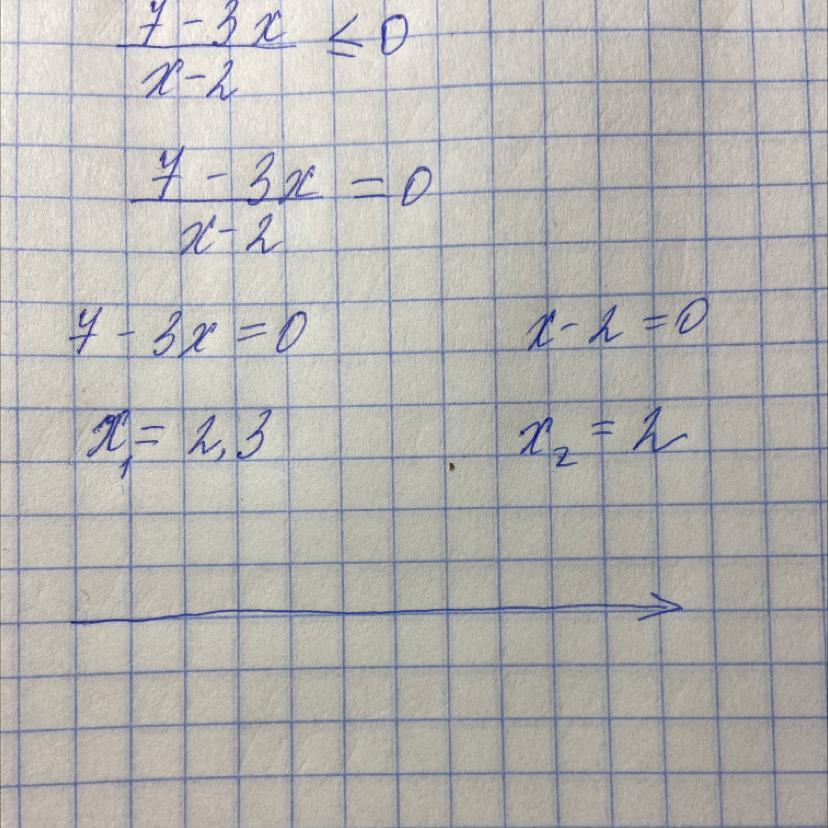 7 - 3x
x - 2 ≤ 0
7 - 3x
x - 2 = 0
7 - 3x = 0 x - 2 = 0
x₁ = 2,3 x₂ = 2